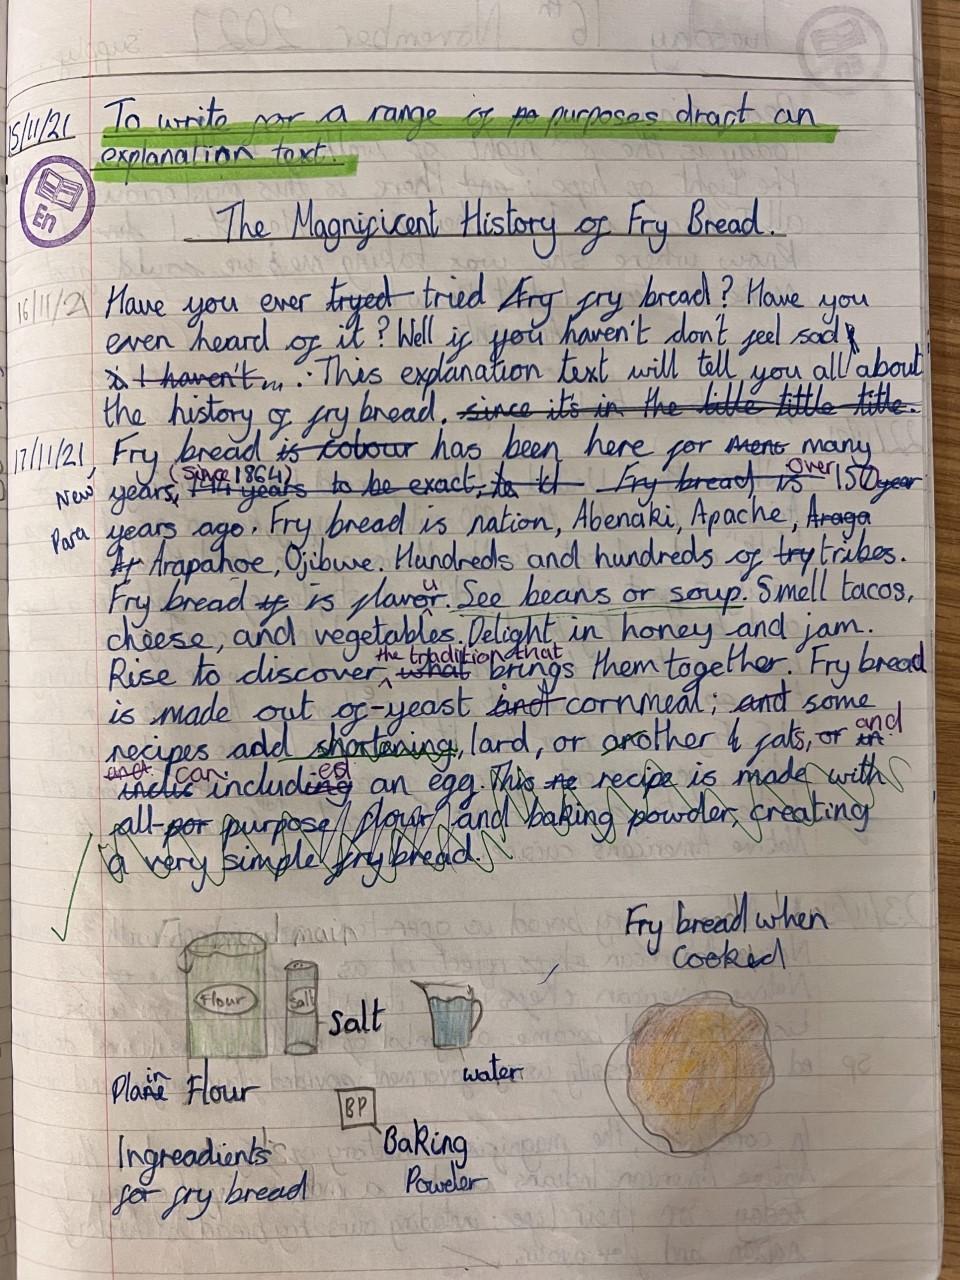 15/11/21 To write for a range of purposes draft an
explanation text.
En
The Magnificent History of Fry Bread.
16/11/21 Have you ever tryed tried fry bread? Have you
even heard of it? Well if you haven't don't feel sad
I haven't... This explanation text will tell you all about
the history of fry bread. since it's in the little tittle title.
17/11/21, Fry bread is colour has been here for many
New years, (Since 1864) 144 years to be exact, Fry bread is over 150 year
Para years ago. Fry bread is nation, Abenaki, Apache, Araga
Ar Arapahoe, Ojibwe. Hundreds and hundreds of try tribes.
Fry bread is flavour. See beans or soup. Smell tacos,
cheese, and vegetables. Delight in honey and jam.
Rise to discover the tradition that what brings them together. Fry bread
is made out of yeast and cornmeal; and some
recipes add shortening, lard, or another fats, or and
and can includinged an egg. This recipe is made with
all-por purpose flour and baking powder, creating
a very simple fry bread.
Fry bread when
Cooked
Flour
Salt
Salt
water
Plain Flour
BP
Baking
Powder
Ingreadients
for fry bread